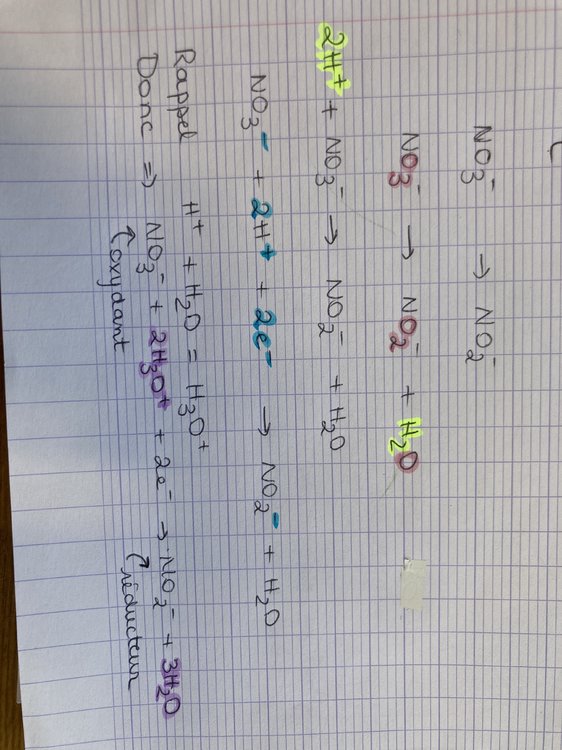 NO₃⁻ → NO₂⁻
NO₃⁻ → NO₂⁻ + H₂O
2H⁺ + NO₃⁻ → NO₂⁻ + H₂O
NO₃⁻ + 2H⁺ + 2e⁻ → NO₂⁻ + H₂O
Rappel H⁺ + H₂O = H₃O⁺
Donc ⇒ NO₃⁻ + 2H₃O⁺ + 2e⁻ → NO₂⁻ + 3H₂O
↑ oxydant ↑ réducteur